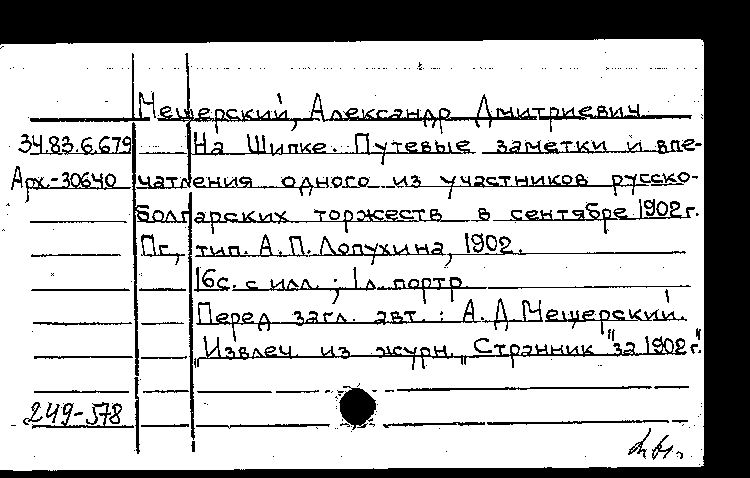 Мещерский, Александр Дмитриевич
34.83.6.679 На Шипке. Путевые заметки и впе-
Арх.-30640 чатления одного из участников русско-
болгарских торжеств в сентябре 1902 г.
Пг, тип. А. П. Лопухина, 1902.
16 с. с илл. ; 1 л. портр
Перед загл. авт. : А. Д Мещерский.
„Извлеч. из журн. „Странник" за 1902 г."
249-578